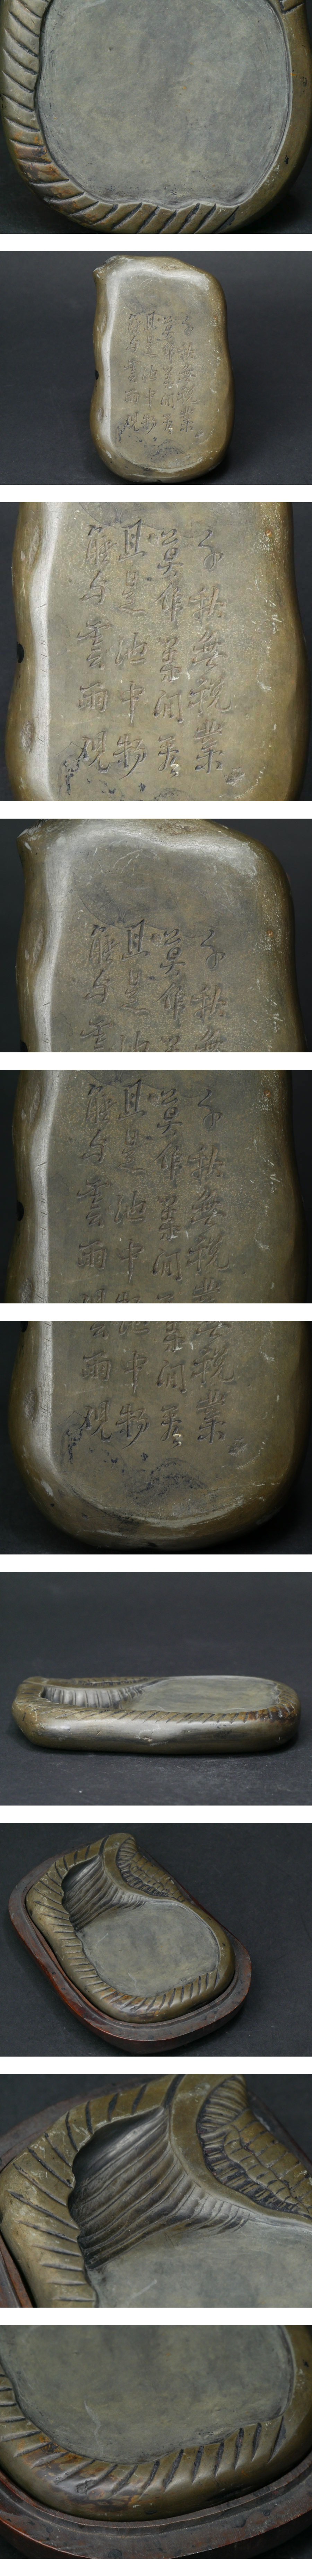 千秋無税業
莫作等閒看
且是池中物
能与雲雨硯